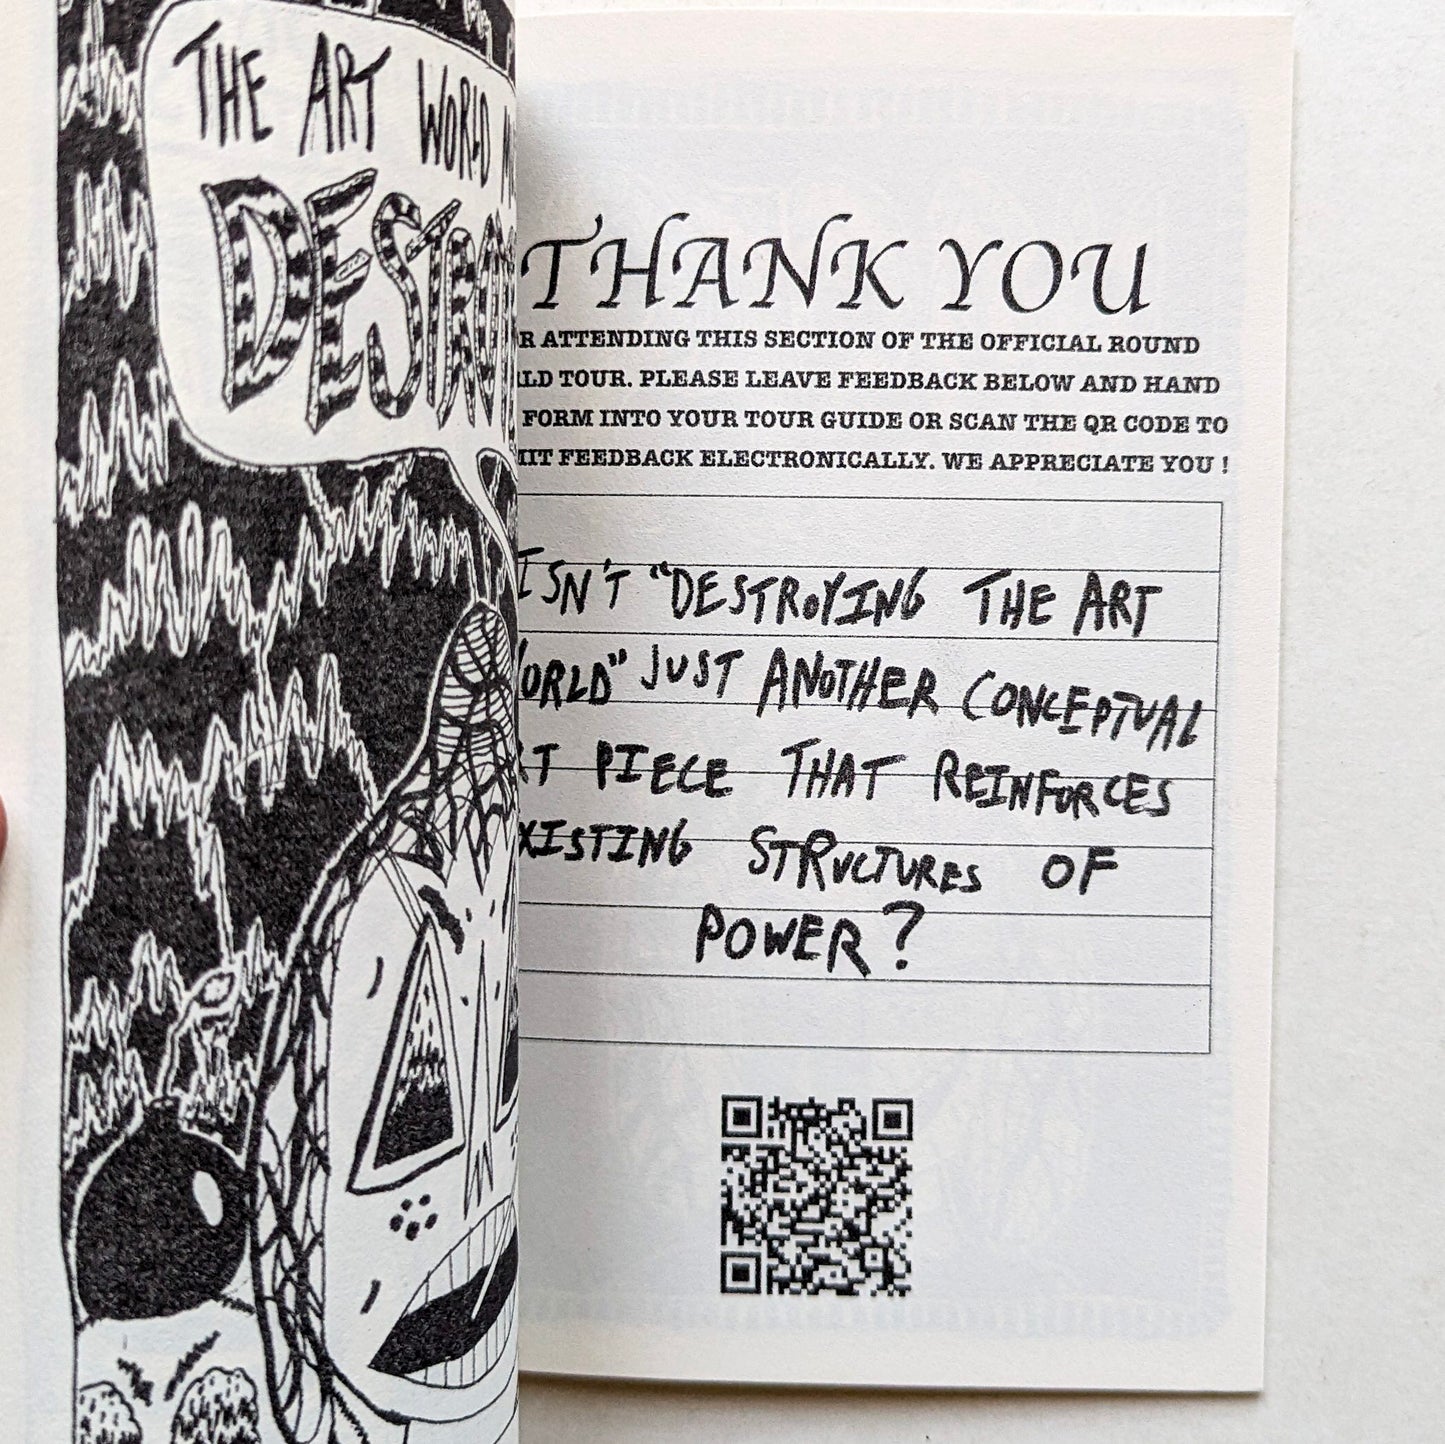 THE ART WORLD
THANK YOU
ATTENDING THIS SECTION OF THE OFFICIAL ROUND
TOUR. PLEASE LEAVE FEEDBACK BELOW AND HAND
FORM INTO YOUR TOUR GUIDE OR SCAN THE QR CODE TO
FEEDBACK ELECTRONICALLY. WE APPRECIATE YOU !
ISN'T "DESTROYING THE ART
ORLD" JUST ANOTHER CONCEPTUAL
RT PIECE THAT REINFORCES
XISTING STRUCTURES OF
POWER?